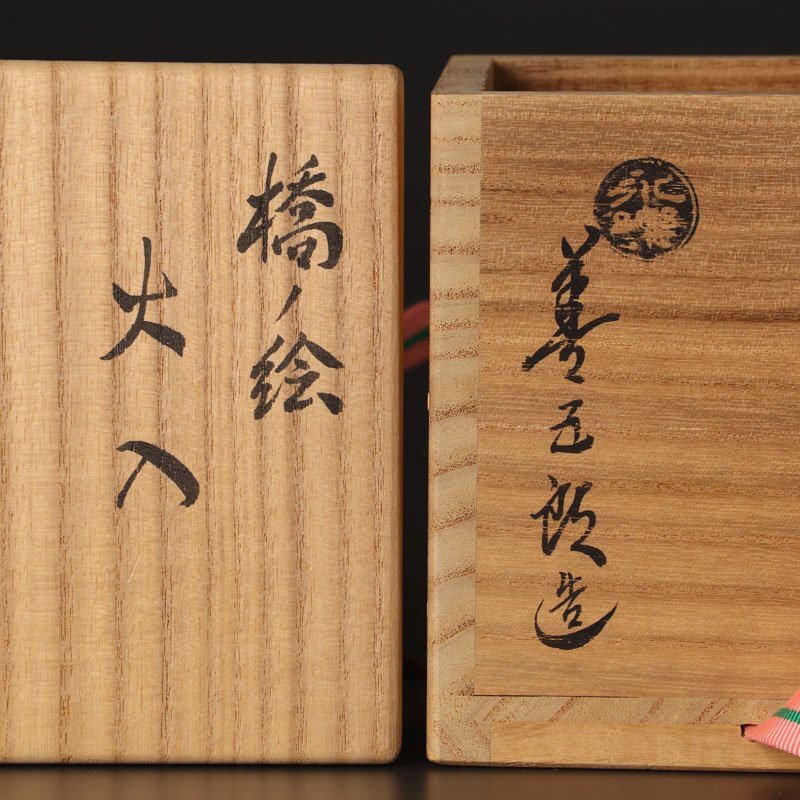 橋ノ絵
火入
永樂
善五郎造